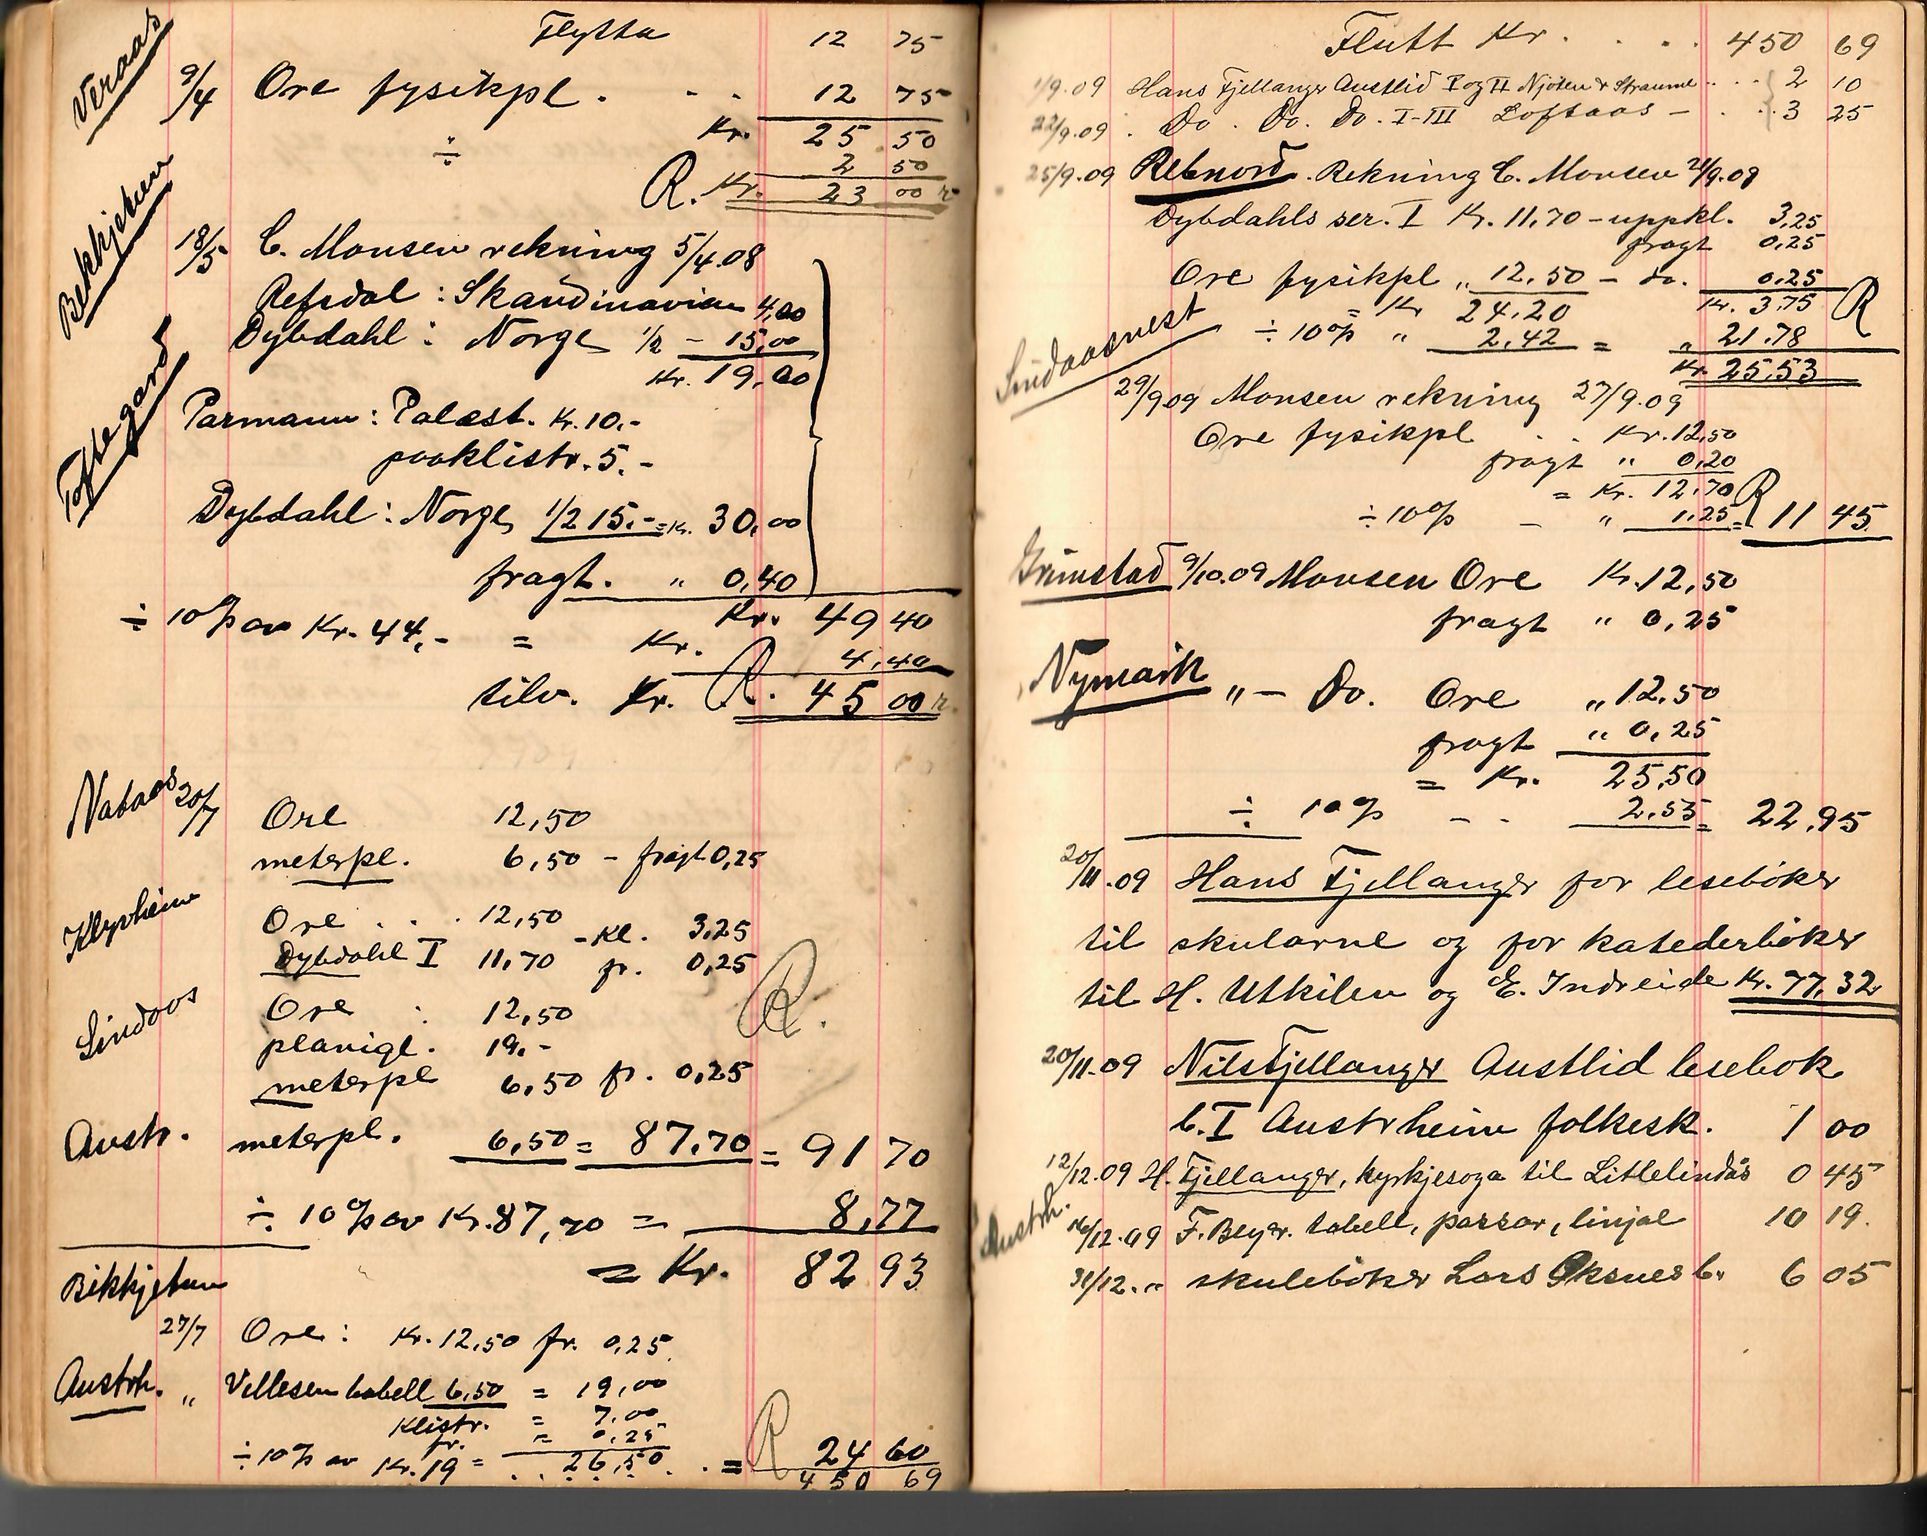 Flytta 12 75
Veraas
9/4 Ore fysikpl. 12 75
Kr. 25 50
÷ 2 50
R. Kr. 23 00
Bekkjetun
18/5 C. Monsen rekning 5/4.08
Refsdal: Skandinavien 4,00
Dybdahl: Norge 1/2 – 15,00
Kr. 19,00
Toftegard
Parmann: Palæst. Kr. 10.-
paaklistr. 5.-
Dybdahl: Norge 1/2 15.- = Kr. 30,00
fragt. " 0,40
Kr. 49 40
÷ 10% av Kr. 44,- = Kr. 4,40
tilv. Kr. R. 45 00
Nataas 20/7 Ore 12,50
meterpl. 6,50 – fragt 0,25
Klyvheim
Ore . . . 12,50
Dybdahl I 11,70 - Kl. 3,25
fr. 0,25
Lindaos
Ore 12,50
R.
planigl. 19.-
meterpl 6,50 fr. 0,25
Austr. meterpl. 6,50 = 87,70 = 91 70
÷ 10% av Kr. 87,70 = 8,77
= Kr. 82 93
Bikkjetun
27/7 Ore: Kr. 12,50 fr. 0,25
Austrh. " Vellesen tabell 6,50 = 19,00
Klistr. = 7,00
fr. = 0,25
÷ 10% av Kr. 19 = 26,50 = R 24 60
450 69
Flutt Kr. . . . 450 69
1/9.09 Hans Fjellanger Austlid I og II Njøten & Straume . . 2 10
22/9.09 . Do. Do. Do. I-III Loftaas – . . 3 25
25/9.09 Rebnord. Rekning C. Monsen 21/9.09
Dybdahls ser. I Kr. 11.70 – uppkl. 3,25
fragt 0,25
Ore fysikpl " 12,50 – do. 0,25
= Kr 24,20 Kr. 3,75 R
÷ 10% " 2,42 = " 21.78
Kr 25,53
Lindaasnest
29/9.09 Monsen rekning 27/9.09
Ore fysikpl . . Kr. 12,50
fragt " 0,20
= Kr. 12,70 R
÷ 10% – " 1,25 = 11 45
Grimstad 9/10.09 Monsen Ore Kr. 12,50
fragt " 0,25
Nymark " – Do. Ore " 12,50
fragt " 0,25
= Kr. 25,50
÷ 10% – - 2,55 = 22,95
20/11.09 Hans Fjellanger for lesebøker
til skularne og for katederbøker
til H. Utkilen og E. Indreide Kr. 77,32
20/11.09 Nils Fjellanger Austlid lesebok
b. I Austrheim folkesk. 1 00
12/12.09 H. Fjellanger, kyrkjesoga til Litlelindås 0 45
Austrh.
16/12.09 F. Beyer. tabell, passar, linjal 10 19.
31/12. " skulebøker Lars Oksnes b. 6 05